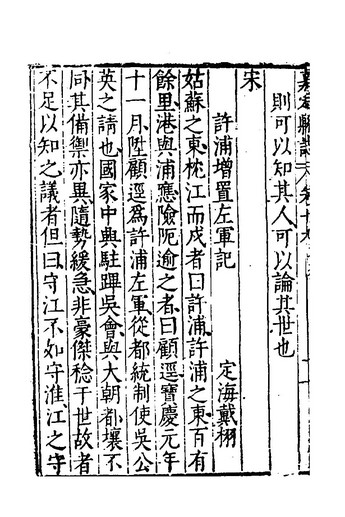 則可以知其人可以論其世也
宋
許浦增置左軍記 定海戴栩
姑蘇之東枕江而戍者曰許浦許浦之東百有
餘里港與浦應險阨逾之者曰顧逕寶慶元年
十一月陞顧逕為許浦左軍從都統制使吳公
英之請也國家中興駐蹕吳會與大朝都壤不
同其備禦亦異隨勢緩急非豪傑稔于世故者
不足以知之議者但曰守江不如守淮江之守